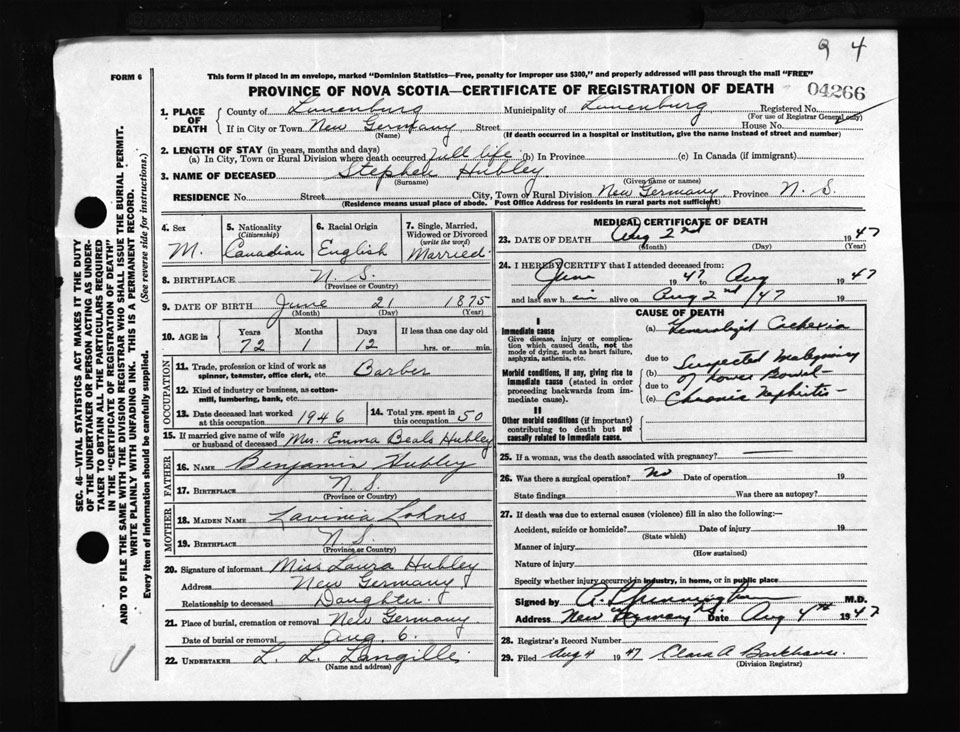 9 4
FORM 6
This form if placed in an envelope, marked "Dominion Statistics—Free, penalty for improper use $300," and properly addressed will pass through the mail "FREE"
PROVINCE OF NOVA SCOTIA—CERTIFICATE OF REGISTRATION OF DEATH
04266
1. PLACE OF DEATH
County of Lunenburg Municipality of Lunenburg Registered No.
(For use of Registrar General only)
If in City or Town New Germany Street House No.
(Name) (If death occurred in a hospital or institution, give the name instead of street and number)
2. LENGTH OF STAY (in years, months and days)
(a) In City, Town or Rural Division where death occurred Full life (b) In Province (c) In Canada (if immigrant)
3. NAME OF DECEASED Stephen Hubley
(Surname) (Given name or names)
RESIDENCE No. Street City, Town or Rural Division New Germany Province N. S.
(Residence means usual place of abode. Post Office Address for residents in rural parts not sufficient)
4. Sex M.
5. Nationality (Citizenship) Canadian
6. Racial Origin English
7. Single, Married, Widowed or Divorced (write the word) Married.
8. BIRTHPLACE N. S.
(Province or Country)
9. DATE OF BIRTH June 21 1875
(Month) (Day) (Year)
10. AGE in Years 72 Months 1 Days 12 If less than one day old hrs. or min.
OCCUPATION
11. Trade, profession or kind of work as spinner, teamster, office clerk, etc. Barber
12. Kind of industry or business, as cotton-mill, lumbering, bank, etc.
13. Date deceased last worked at this occupation 1946
14. Total yrs. spent in this occupation 50
15. If married give name of wife or husband of deceased Mrs. Emma Beals Hubley
FATHER
16. NAME Benjamin Hubley
17. BIRTHPLACE N. S.
(Province or Country)
MOTHER
18. MAIDEN NAME Lavinia Lohnes
19. BIRTHPLACE N. S.
(Province or Country)
20. Signature of informant Miss Laura Hubley
Address New Germany
Relationship to deceased Daughter.
21. Place of burial, cremation or removal New Germany
Date of burial or removal Aug. 6.
22. UNDERTAKER L. L. Langille
(Name and address)
MEDICAL CERTIFICATE OF DEATH
23. DATE OF DEATH Aug 2nd 1947
(Month) (Day) (Year)
24. I HEREBY CERTIFY that I attended deceased from:
June 1947 to Aug 1947
and last saw him alive on Aug 2nd /47 19
CAUSE OF DEATH
I
Immediate cause
Give disease, injury or complication which caused death, not the mode of dying, such as heart failure, asphyxia, asthenia, etc.
(a) Generalized Cachexia
due to
Morbid conditions, if any, giving rise to immediate cause (stated in order proceeding backwards from immediate cause).
(b) Suspected Malignancy of Lower Bowel
due to
(c) Chronic Nephritis
II
Other morbid conditions (if important) contributing to death but not causally related to immediate cause.
25. If a woman, was the death associated with pregnancy?
26. Was there a surgical operation? No Date of operation 19
State findings Was there an autopsy?
27. If death was due to external causes (violence) fill in also the following:—
Accident, suicide or homicide? Date of injury 19
(State which)
Manner of injury
(How sustained)
Nature of injury
Specify whether injury occurred in industry, in home, or in public place
Signed by M.D.
Address New Germany NS Date Aug 4th 1947
28. Registrar's Record Number
29. Filed Aug 4 1947 Clara A Barkhouse.
(Division Registrar)
SEC. 46—VITAL STATISTICS ACT MAKES IT THE DUTY
OF THE UNDERTAKER OR PERSON ACTING AS UNDER-
TAKER TO OBTAIN ALL THE PARTICULARS REQUIRED
IN THE "CERTIFICATE OF REGISTRATION OF DEATH"
AND TO FILE THE SAME WITH THE DIVISION REGISTRAR WHO SHALL ISSUE THE BURIAL PERMIT.
WRITE PLAINLY WITH UNFADING INK. THIS IS A PERMANENT RECORD.
Every item of information should be carefully supplied. (See reverse side for instructions.)